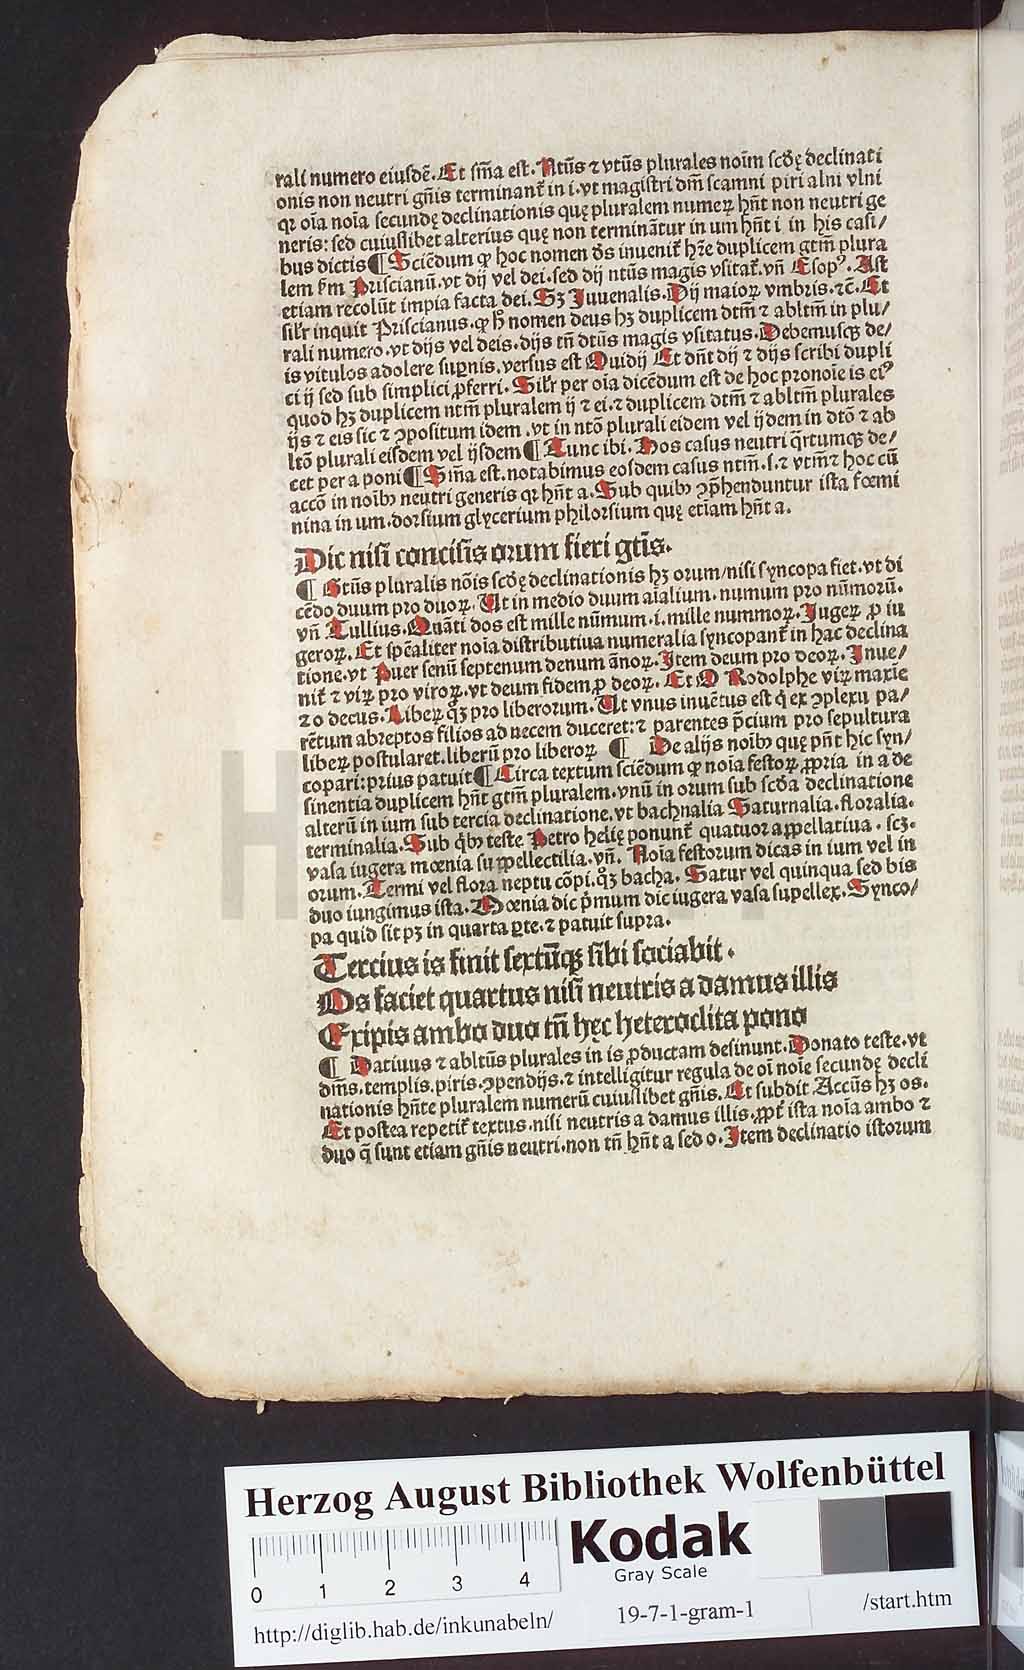 rali numero eiusdē. Et sm̄a est. Ntūs ⁊ vtūs plurales noīm scd̄ę declinati
onis non neutri gn̄is terminant᷑ in i. vt magistri dm̄i scamni piri alni vlni
qꝛ oīa noīa secundę declinationis quę pluralem numeꝝ hn̄t non neutri ge
neris: sed cuiuslibet alterius quę non terminātur in um hn̄t i in his casi/
bus dictis ¶ Sciēdum ꝙ hoc nomen d̄s inuenit᷑ hr̄e duplicem gtm̄ plura
lem s̄m Priscianū. vt dij vel dei. sed dij ntūs magis vsitat᷑. vn̄ Esopꝰ. Ast
etiam recolūt impia facta dei. Sꝫ Juuenalis. Dij maioꝝ vmbris. ⁊c̄. Et
sil'r inquit Priscianus. ꝙ h̄ nomen deus hꝫ duplicem dtm̄ ⁊ abltm̄ in plu/
rali numero. vt dijs vel deis. dijs tn̄ dtūs magis vsitatus. Debemusqꝫ de/
is vitulos adolere supnis. versus est Ouidij Et dn̄t dij ⁊ dijs scribi dupli
ci ij sed sub simplici ꝓferri. Sil'r per oīa dicēdum est de hoc pronoīe is eiꝰ
quod hꝫ duplicem ntm̄ pluralem ij ⁊ ei. ⁊ duplicem dtm̄ ⁊ abltm̄ plurales
ijs ⁊ eis sic ⁊ ꝯpositum idem. vt in ntō plurali eidem vel ijdem in dtō ⁊ ab
ltō plurali eisdem vel ijsdem ¶ Tunc ibi. Hos casus neutri q̄rtumqꝫ de/
cet per a poni ¶ Sm̄a est. notabimus eosdem casus ntm̄. s. ⁊ vtm̄ ⁊ hoc cū
accō in noībꝫ neutri generis qꝛ hn̄t a. Sub quibꝫ ꝯp̄henduntur ista fœmi
nina in um. dorsium glycerium philorsium quę etiam hn̄t a.
Dic nisi concisis orum fieri gtīs.
¶ Gtūs pluralis nōis scd̄ę declinationis hꝫ orum/nisi syncopa fiet. vt di
cēdo duum pro duoꝝ. Ut in medio duum aīalium. numum pro nūmorū.
vn̄ Tullius. Quāti dos est mille nūmum. i. mille nummoꝝ. Jugeꝝ ꝓ iu
geroꝝ. Et spēaliter noīa distributiua numeralia syncopant᷑ in hac declina
tione. vt Puer senū septenum denum ānoꝝ. Item deum pro deoꝝ. Inue/
nit᷑ ⁊ viꝝ pro viroꝝ. vt deum fidem ꝓ deoꝝ. Et O Rodolphe viꝝ maxīe
⁊ o decus. Libeꝝ qꝫ pro liberorum. Ut vnus inuētus est q̇ ex ꝯplexu pa/
rētum abreptos filios ad necem duceret: ⁊ parentes p̄cium pro sepultura
libeꝝ postularet. liberū pro liberoꝝ ¶ De alijs noībꝫ quę pn̄t hic syn/
copari: prius patuit ¶ Circa textum sciēdum ꝙ noīa festoꝝ ꝓpria in a de
sinentia duplicem hn̄t gtm̄ pluralem. vnū in orum sub scd̄a declinatione
alterū in ium sub tercia declinatione. vt bachnalia Saturnalia. floralia.
terminalia. Sub q̇bꝫ teste Petro helię ponunt᷑ quatuor appellatiua. scꝫ.
vasa iugera mœnia suppellectilia. vn̄. Noīa festorum dicas in ium vel in
orum. Termi vel flora neptu cōpi. qꝫ bacha. Satur vel quinqua sed bis
duo iungimus ista. Mœnia dic p̄mum dic iugera vasa supellex. Synco/
pa quid sit pꝫ in quarta ꝑte. ⁊ patuit supra.
Tercius is finit sextūqꝫ sibi sociabit.
Os faciet quartus nisi neutris a damus illis
Eripis ambo duo tn̄ hęc heteroclita pono
¶ Datiuus ⁊ abltūs plurales in is ꝓductam desinunt. Donato teste. vt
dm̄s. templis. piris. ꝯpendijs. ⁊ intelligitur regula de oī noīe secundę decli
nationis hn̄te pluralem numerū cuiuslibet gn̄is. Et subdit Accūs hꝫ os.
Et postea repetit᷑ textus. nisi neutris a damus illis. ꝓpt᷑ ista noīa ambo ⁊
duo q̄ sunt etiam gn̄is neutri. non tn̄ hn̄t a sed o. Item declinatio istorum
Herzog August Bibliothek Wolfenbüttel
Kodak
Gray Scale
0 1 2 3 4
http://diglib.hab.de/inkunabeln/ 19-7-1-gram-1 /start.htm